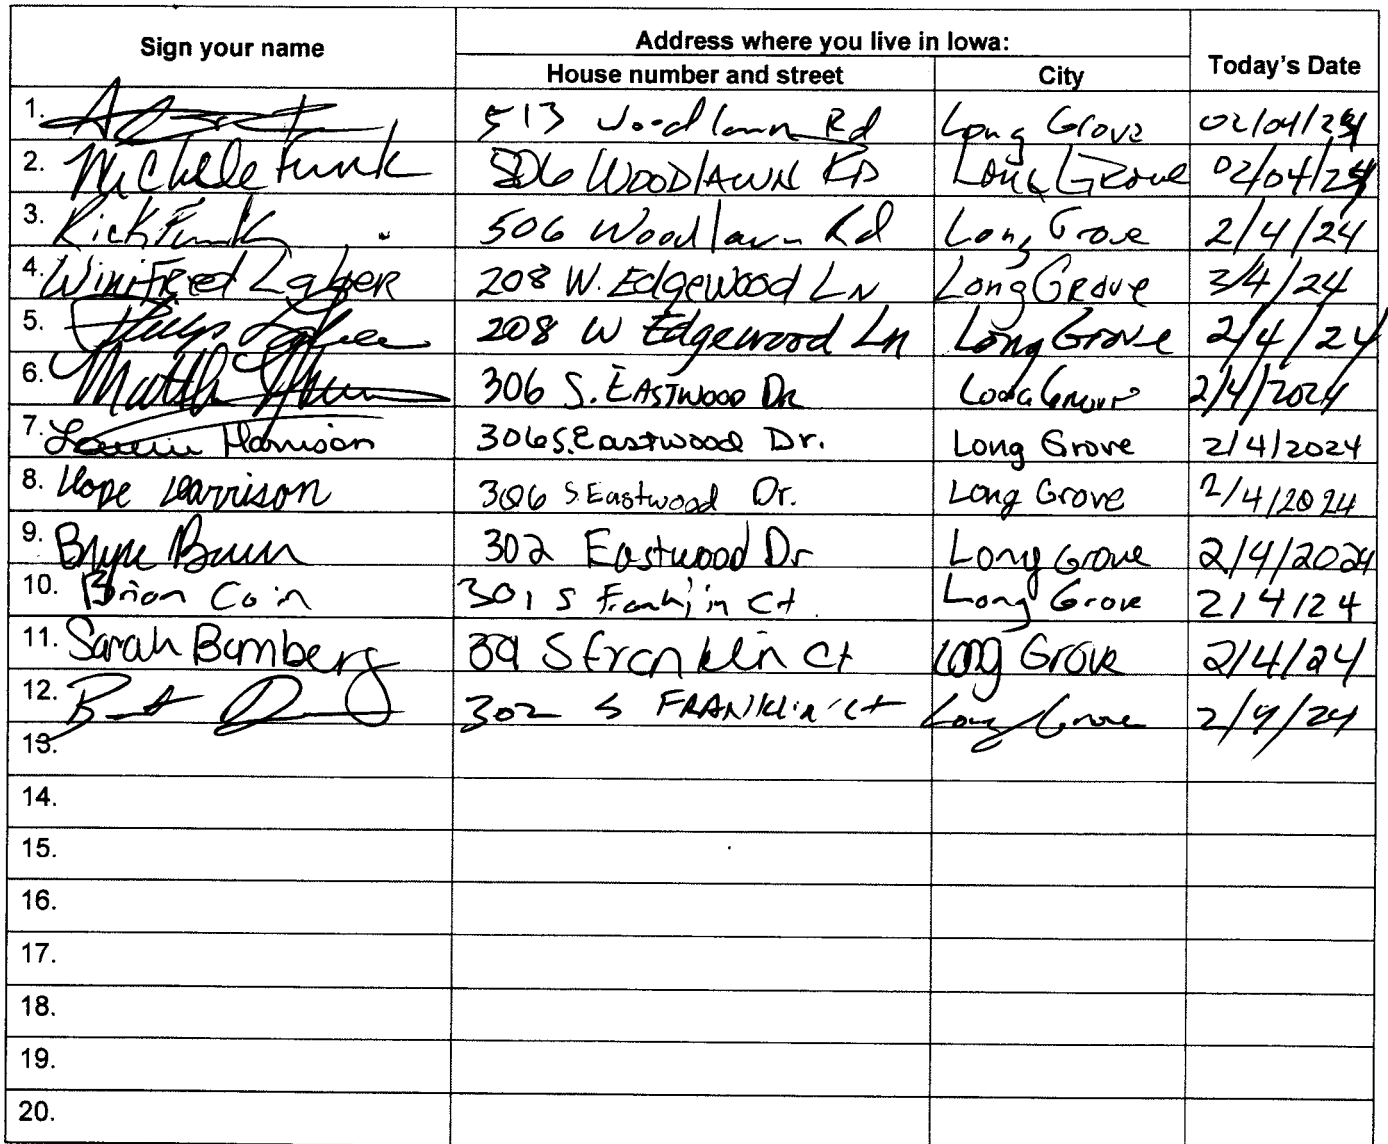 Sign your name Address where you live in Iowa: Today's Date
House number and street City
1. 513 Woodlawn Rd Long Grove 02/04/24
2. Michele Funk 506 WOODLAWN RD Long Grove 02/04/24
3. Rick Funk 506 Woodlawn Rd Long Grove 2/4/24
4. Winifred Laber 208 W. Edgewood LN Long Grove 3/4/24
5. 208 W Edgewood Ln Long Grove 2/4/24
6. 306 S. EASTWOOD DR Long Grove 2/4/2024
7. Harrison 306 S. Eastwood Dr. Long Grove 2/4/2024
8. Hope Harrison 306 S. Eastwood Dr. Long Grove 2/4/2024
9. 302 Eastwood Dr Long Grove 2/4/2024
10. Brian Coin 301 S Franklin Ct. Long Grove 2/4/24
11. Sarah Bamberg S Franklin Ct Long Grove 2/4/24
12. 302 S FRANKlin Ct Long Grove 2/4/24
13.
14.
15.
16.
17.
18.
19.
20.